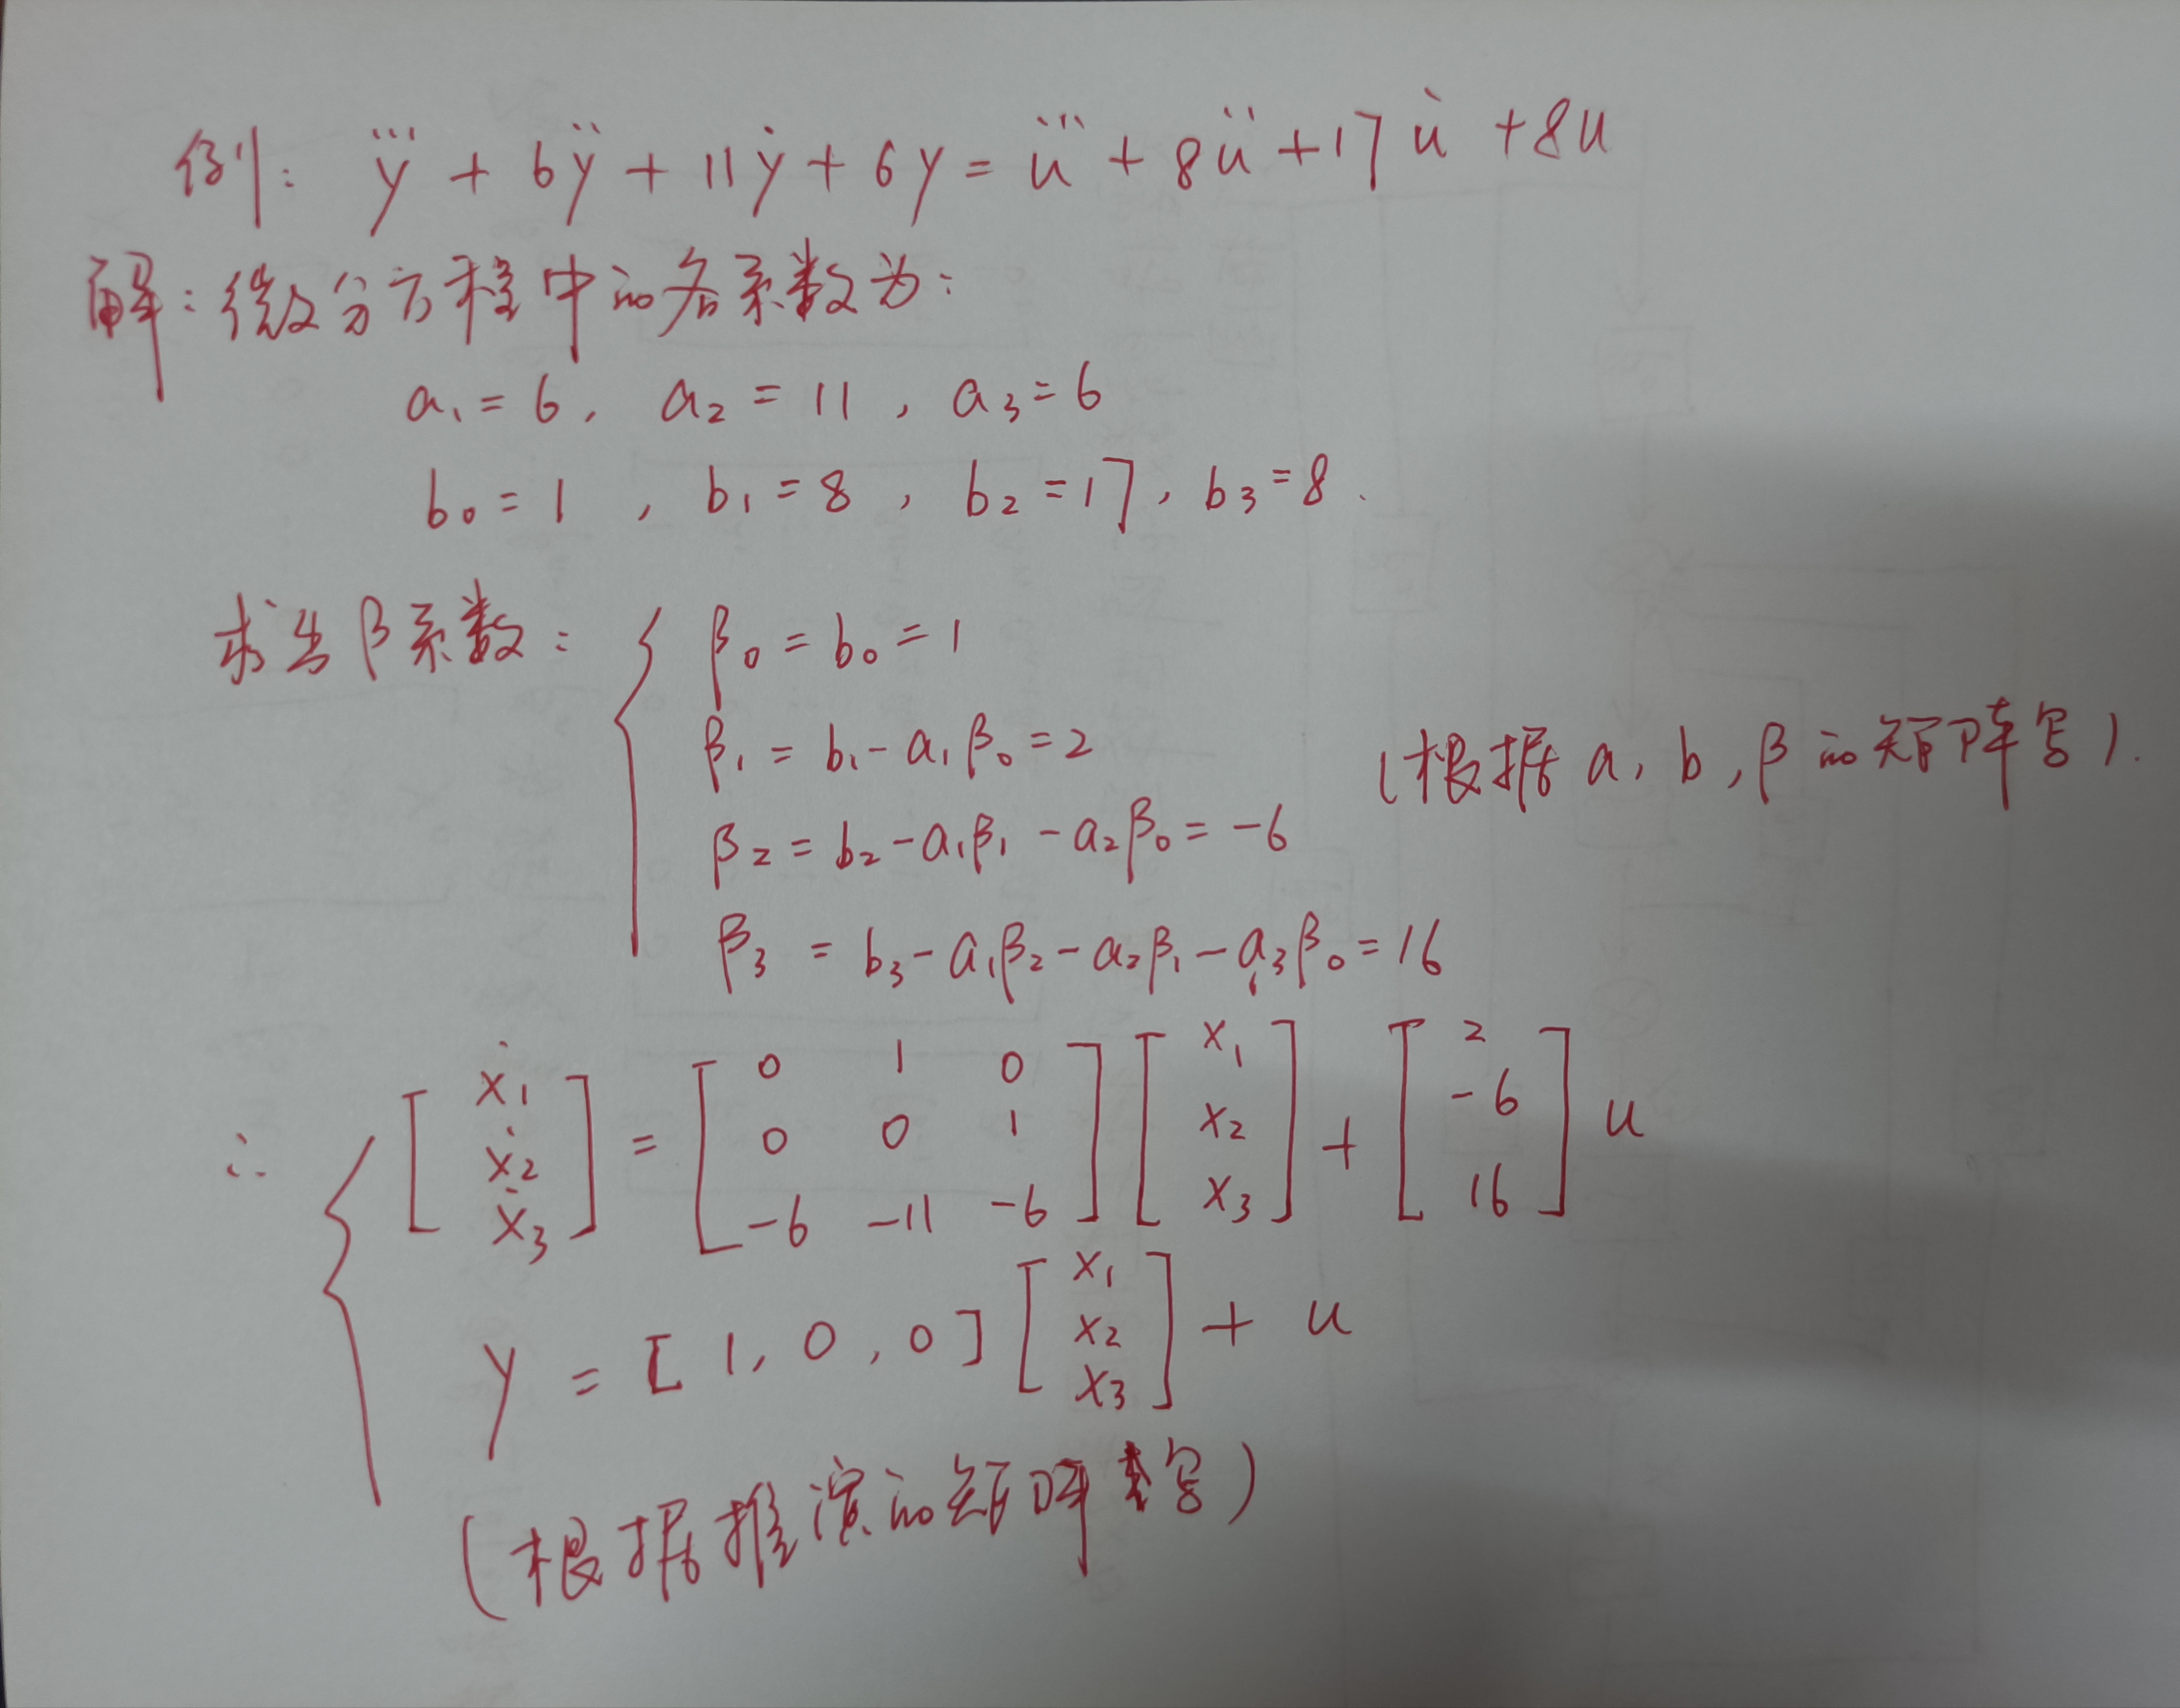 例: y⃛ + 6ÿ + 11ẏ + 6y = u⃛ + 8ü + 17u̇ + 8u
解: 微分方程中的各系数为:
a₁ = 6, a₂ = 11, a₃ = 6
b₀ = 1, b₁ = 8, b₂ = 17, b₃ = 8.
求出β系数: { β₀ = b₀ = 1
β₁ = b₁ - a₁β₀ = 2
(根据a, b, β的矩阵写).
β₂ = b₂ - a₁β₁ - a₂β₀ = -6
β₃ = b₃ - a₁β₂ - a₂β₁ - a₃β₀ = 16
∴ { [ẋ₁ ẋ₂ ẋ₃] = [0 1 0; 0 0 1; -6 -11 -6] [x₁ x₂ x₃] + [2 -6 16] u
y = [1, 0, 0] [x₁ x₂ x₃] + u
(根据推演的矩阵写)